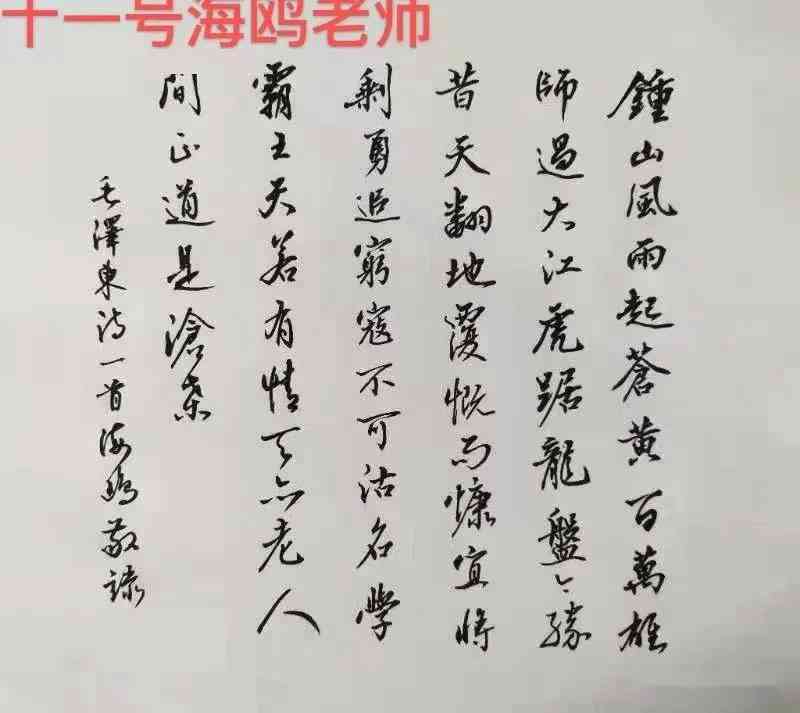 十一号海鸥老师
鍾山風雨起蒼黄百萬雄
師過大江虎踞龍盤今勝
昔天翻地覆慨而慷宜將
剩勇追窮寇不可沽名學
霸王天若有情天亦老人
間正道是滄桑
毛澤東詩一首海鸥敬録